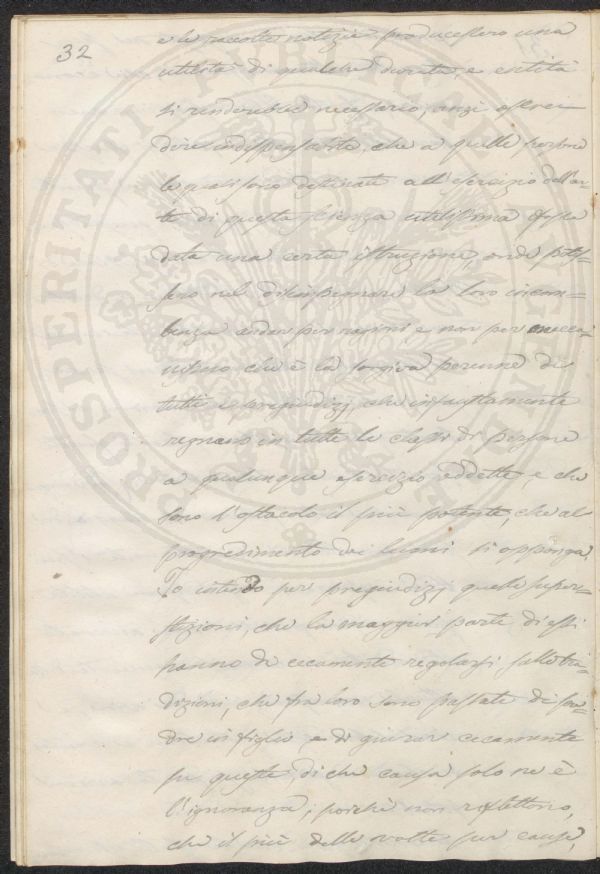 32
e le raccolte notizie producessero una
utilità di qualche durata, e entità
si renderebbe necessario, anzi
dire indispensabile, che a quelle persone
le quali sono destinate all'esercizio dell'ar-
te di questa scienza utilissima fosse
data una certa istruzione, onde potes-
sero nel disimpegnare la loro incom-
benza andar per ragioni, e non per mecca-
nismo che è la sorgiva perenne di
tutti i pregiudizj, che infaustamente
regnano in tutte le classi di persone
a qualunque esercizio addette, e che
sono l'ostacolo il più potente, che al
progredimento dei lumi si opponga.
Io intendo per pregiudizj queste super-
stizioni, che la maggior parte di essi
hanno di ciecamente regolarsi sulle tra-
dizioni, che fra loro sono passate di pa-
dre in figlio e di giurar ciecamente
su queste, di che causa solo ne è
l'ignoranza; poiché non riflettono,
che il più delle volte per cause,
PROSPERITATI PUBLICAE AUGENDAE